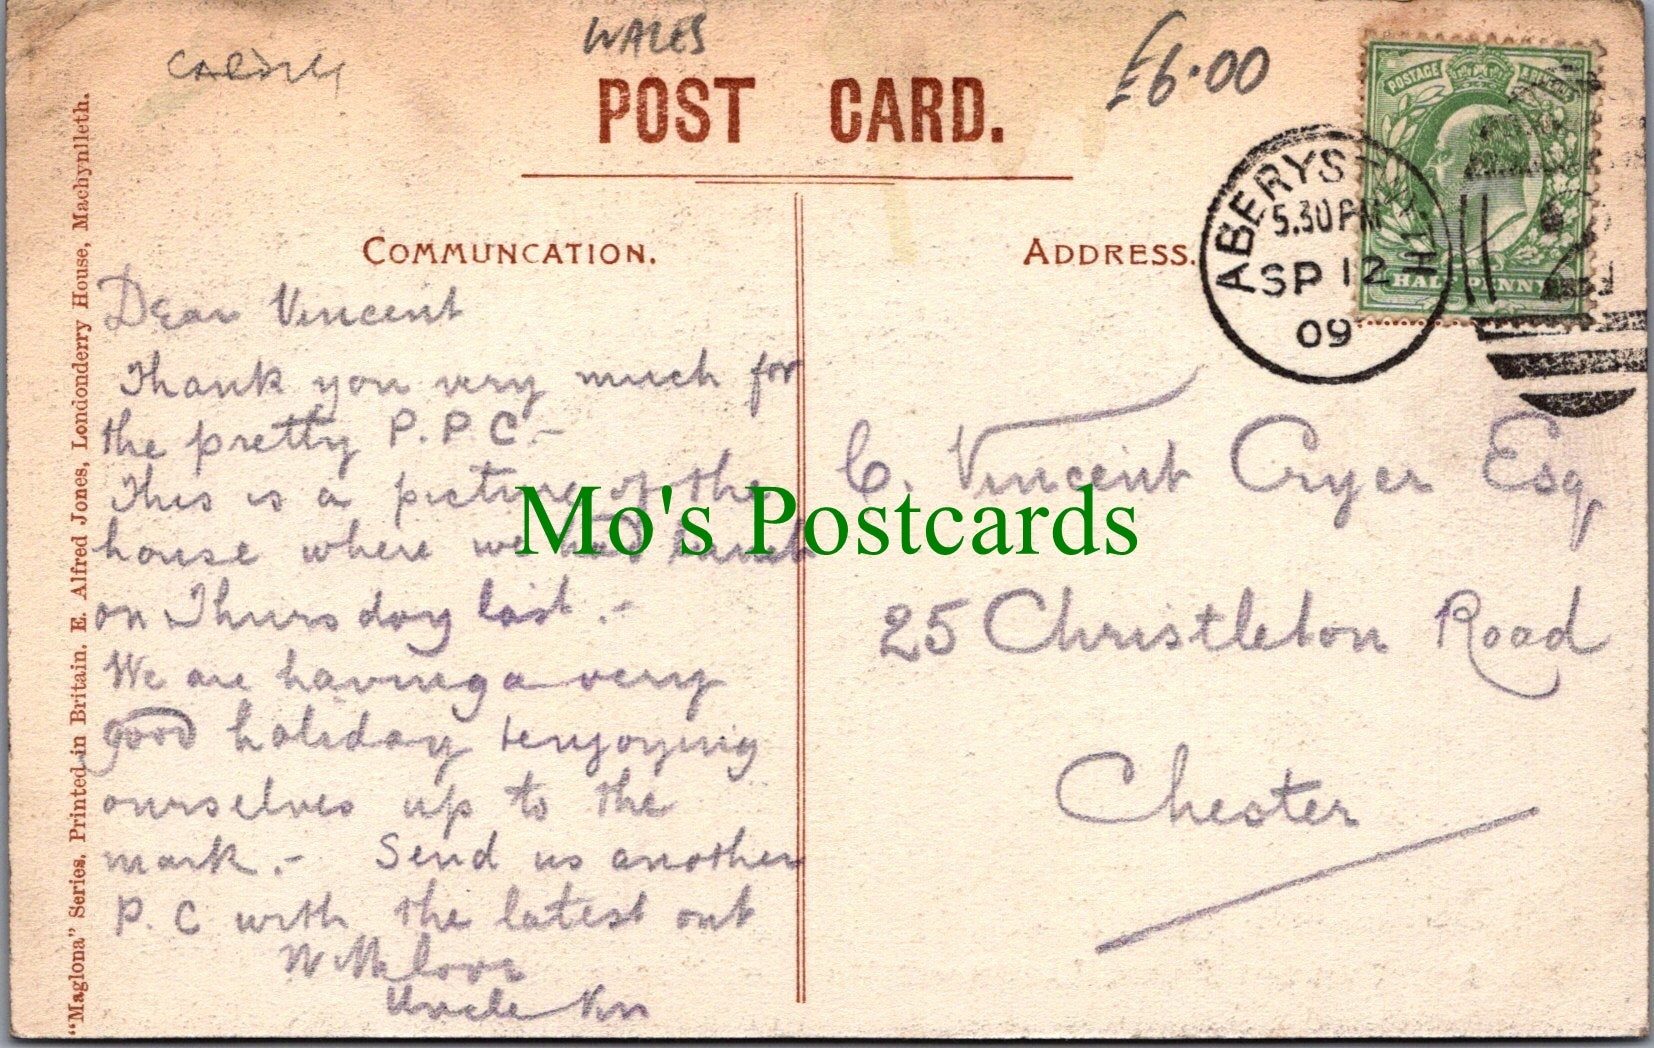 WALES
£6.00
POST CARD.
POSTAGE
HALFPENNY
ABERYSTWYTH
5.30 PM
SP 12
09
COMMUNCATION.
ADDRESS.
Dear Vincent
Thank you very much for
the pretty P.P.C.-
This is a picture of the
house where we had lunch
on Thursday last.-
We are having a very
good holiday & enjoying
ourselves up to the
mark.- Send us another
P.C with the latest out
With love
Uncle
C. Vincent Cryer Esq
25 Christleton Road
Chester
"Maglona" Series. Printed in Britain. E. Alfred Jones, Londonderry House, Machynlleth.
Mo's Postcards